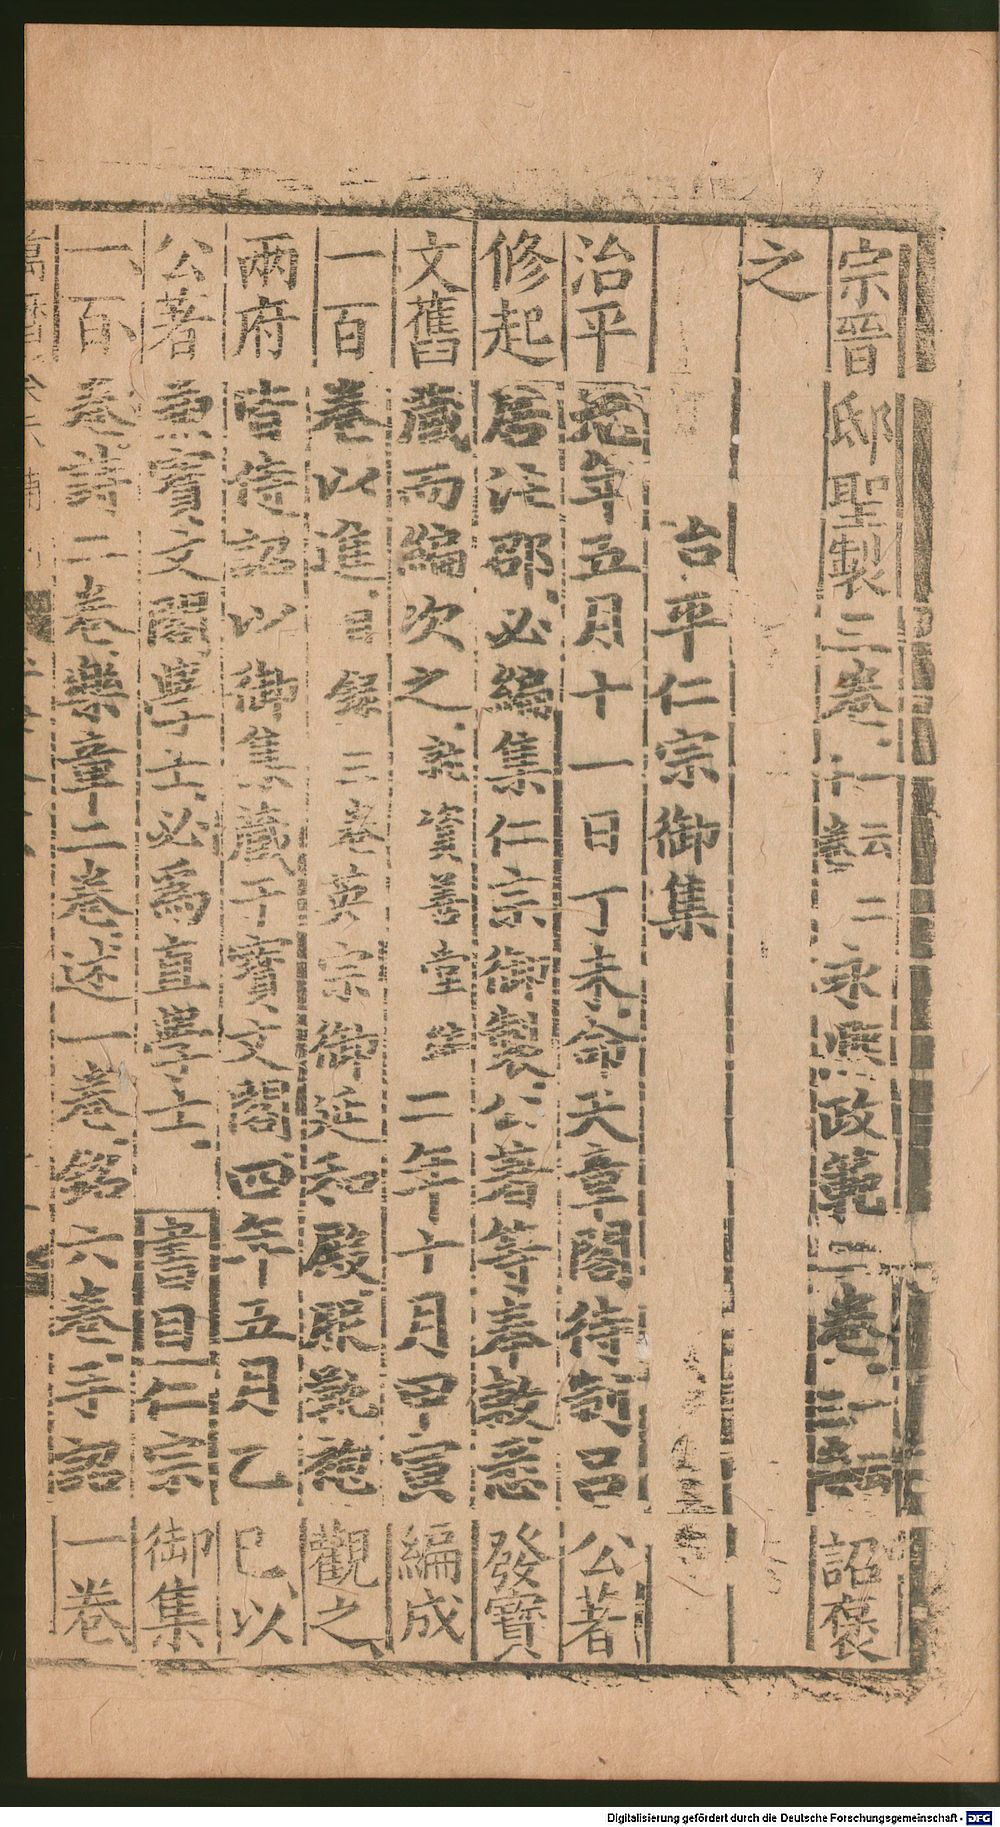 宗晉邸聖製三卷一云二十卷永熙政範二卷一云三卷詔褒
之
治平仁宗御集
治平元年五月十一日丁未命天章閣待制呂公著
修起居注邵必編集仁宗御製公著等奉敕悉發寶
文舊藏而編次之就資善堂二年十月甲寅編成
一百卷以進目錄三卷英宗御延和殿服鞾袍觀之
兩府皆侍詔以御集藏于寶文閣四年五月乙巳以
公著兼寶文閣學士必爲直學士書目仁宗御集
一百卷詩二卷樂章二卷述一卷銘六卷手詔一卷
萬曆
Digitalisierung gefördert durch die Deutsche Forschungsgemeinschaft - DFG